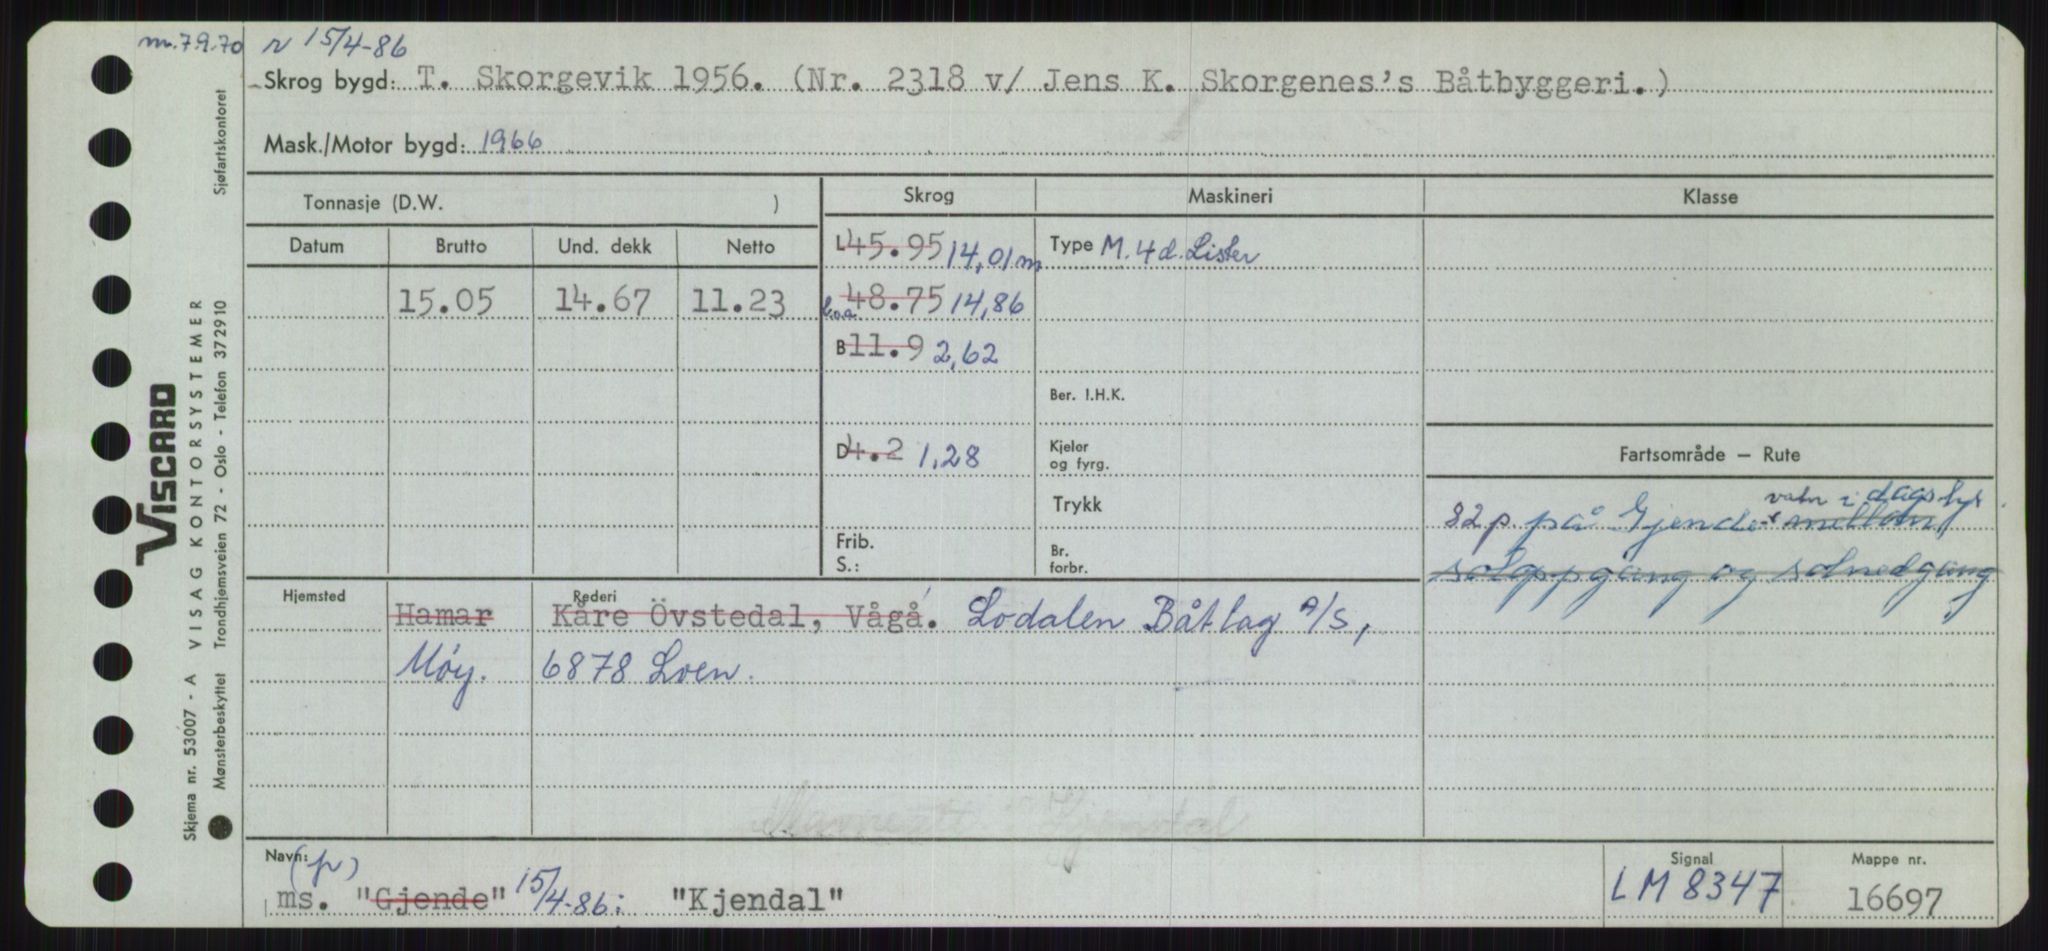 m.7.9.70 r 15/4-86
Skrog bygd: T. Skorgevik 1956. (Nr. 2318 v/ Jens K. Skorgenes's Båtbyggeri.)
Mask./Motor bygd: 1966
Tonnasje (D.W. )
Skrog Maskineri Klasse
Datum Brutto Und. dekk Netto
L 45.95 14,01 m Type M. 4 d. Lister
15.05 14.67 11.23 L.o.a 48.75 14,86
B 11.9 2,62
Ber. I.H.K.
D 4.2 1,28 Kjeler
og fyrg.
Fartsområde – Rute
Trykk
vatn i dagslys.
82 p. på Gjende mellom
Frib.
S.:
Br.
forbr.
soloppgang og solnedgang
Hjemsted Rederi
Hamar Kåre Övstedal, Vågå. Lodalen Båtlag A/S,
Møy. 6878 Loen.
Navn: (p)
ms. "Gjende" 15/4-86: "Kjendal"
Signal
LM8347
Mappe nr.
16697
VISCARD
Skjema nr. 53007 - A VISAG KONTORSYSTEMER
Mønsterbeskyttet Trondhjemsveien 72 - Oslo - Telefon 372910 Sjøfartskontoret